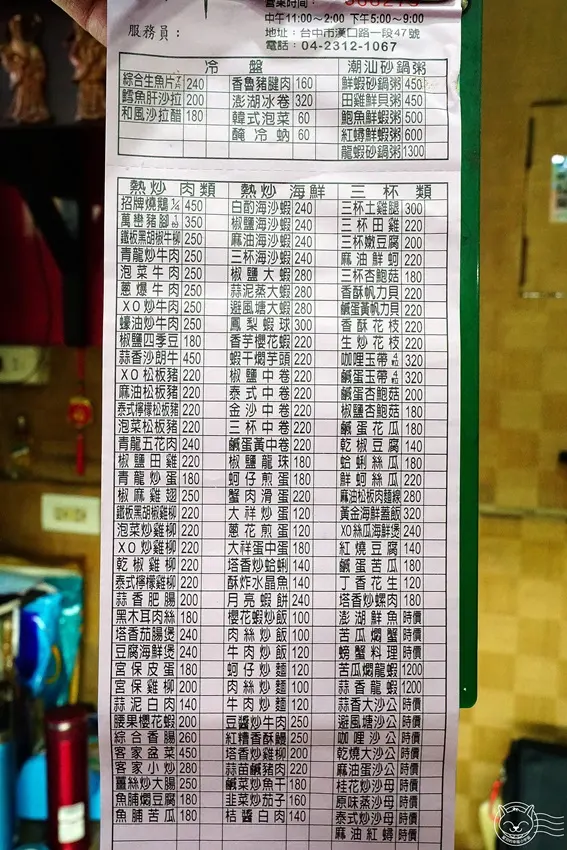 營業時間：
中午11:00～2:00 下午5:00～9:00
服務員：
地址：台中市漢口路一段47號
電話：04-2312-1067
冷盤 潮汕砂鍋粥
綜合生魚片 240 香魯豬腱肉 160 鮮蝦砂鍋粥 450
鱈魚肝沙拉 200 澎湖冰卷 320 田雞鮮貝粥 450
和風沙拉醋 180 韓式泡菜 60 鮑魚鮮蝦粥 500
醃冷蚋 60 紅蟳鮮蝦粥 600
龍蝦砂鍋粥 1300
熱炒肉類 熱炒海鮮 三杯類
招牌燒鵝¼ 450 白酌海沙蝦 240 三杯土雞腿 300
萬巒豬腳 350 椒鹽海沙蝦 240 三杯田雞 220
鐵板黑胡椒牛柳 250 麻油海沙蝦 240 三杯嫩豆腐 200
青龍炒牛肉 250 三杯海沙蝦 240 麻油鮮蚵 220
泡菜牛肉 250 椒鹽大蝦 280 三杯杏鮑菇 180
蔥爆牛肉 250 蒜泥蒸大蝦 280 香酥帆力貝 220
XO炒牛肉 250 避風塘大蝦 280 鹹蛋黃帆力貝 220
蠔油炒牛肉 250 鳳梨蝦球 300 香酥花枝 220
椒鹽四季豆 180 香芋櫻花蝦 220 生炒花枝 220
蒜香沙朗牛 450 蝦干燜芋頭 220 咖哩玉帶 320
XO松板豬 220 椒鹽中卷 220 鹹蛋玉帶 320
麻油松板豬 220 泰式中卷 220 鹹蛋杏鮑菇 200
泰式檸檬松板豬 220 金沙中卷 220 椒鹽杏鮑菇 180
泡菜松板豬 220 三杯中卷 220 鹹蛋花瓜 180
青龍五花肉 240 鹹蛋黃中卷 220 乾椒豆腐 140
椒鹽田雞 220 椒鹽龍珠 180 蛤蜊絲瓜 180
青龍炒蛋 180 蚵仔煎蛋 180 鮮蚵絲瓜 180
椒麻雞翅 250 蟹肉滑蛋 220 麻油松板肉麵線 280
鐵板黑胡椒雞柳 220 大祥炒蛋 140 黃金海鮮蓋飯 320
泡菜炒雞柳 220 蔥花煎蛋 120 XO絲瓜海鮮煲 240
XO炒雞柳 220 大祥蛋中蛋 180 紅燒豆腐 140
乾椒雞柳 220 塔香炒蛤蜊 140 鹹蛋苦瓜 180
泰式檸檬雞柳 220 酥炸水晶魚 140 丁香花生 120
蒜香肥腸 200 月亮蝦餅 240 塔香炒螺肉 180
黑木耳肉絲 180 櫻花蝦炒飯 100 澎湖鮮魚 時價
塔香茄腸煲 240 肉絲炒飯 100 苦瓜燜蟹 時價
豆腐海鮮煲 240 牛肉炒飯 120 螃蟹料理 時價
宮保皮蛋 180 蚵仔炒麵 120 苦瓜燜龍蝦 1200
宮保雞柳 200 肉絲炒麵 100 蒜香龍蝦 1200
蒜泥白肉 140 牛肉炒麵 120 蒜香大沙公 時價
腰果櫻花蝦 200 豆醬炒牛肉 250 避風塘沙公 時價
綜合香腸 260 紅糟香酥鰻 250 咖哩沙公 時價
客家盆菜 450 塔香炒雞柳 200 乾燒大沙公 時價
客家小炒 280 蒜苗鹹豬肉 220 麻油蛋沙公 時價
薑絲炒大腸 250 鹹菜炒魚干 180 桂花炒沙母 時價
魚脯燜豆腐 180 韭菜炒茄子 160 原味蒸沙母 時價
魚脯苦瓜 180 桔醬白肉 140 泰式炒沙母 時價
麻油紅蟳 時價